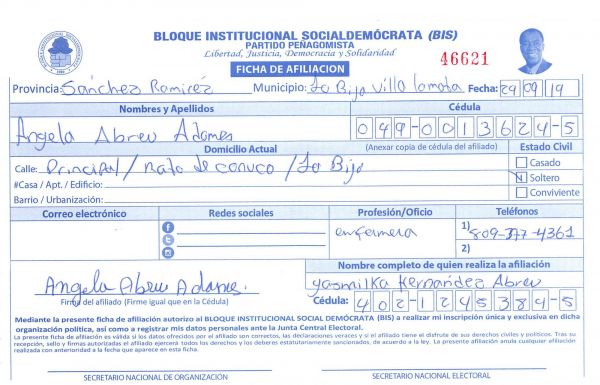 BLOQUE INSTITUCIONAL SOCIALDEMÓCRATA (BIS)
PARTIDO PEÑAGOMISTA
Libertad, Justicia, Democracia y Solidaridad
FICHA DE AFILIACION
46621
Provincia: Sánchez Ramírez Municipio: La Bija Villa la mata Fecha: 29/09/19
Nombres y Apellidos Cédula
Angela Abreu Adames 049-0013624-5
Domicilio Actual (Anexar copia de cédula del afiliado) Estado Civil
Calle: Principal/mata de conuco/La Bija
Casado
#Casa / Apt. / Edificio: Soltero
Barrio / Urbanización: Conviviente
Correo electrónico Redes sociales Profesión/Oficio Teléfonos
enfermera 1) 809-377-4361
2)
Nombre completo de quien realiza la afiliación
Angela Abreu Adames. yasmilka Hernández Abreu
Firma del afiliado (Firme igual que en la Cédula) Cédula: 402-1245384-5
Mediante la presente ficha de afiliación autorizo al BLOQUE INSTITUCIONAL SOCIAL DEMÓCRATA (BIS) a realizar mi inscripción única y exclusiva en dicha
organización política, así como a registrar mis datos personales ante la Junta Central Electoral.
La presente ficha de afiliación es válida si los datos ofrecidos por el afiliado son correctos, las declaraciones veraces y si el afiliado tiene el disfrute de sus derechos civiles y políticos. Tras su
recepción, sello y firmas autorizadas el afiliado ejercerá todos los derechos y los deberes estatutariamente sancionados, de acuerdo a la ley. La presente afiliación anula cualquier afiliación
realizada con anterioridad a la fecha que aparece en esta ficha.
SECRETARIO NACIONAL DE ORGANIZACIÓN SECRETARIO NACIONAL ELECTORAL